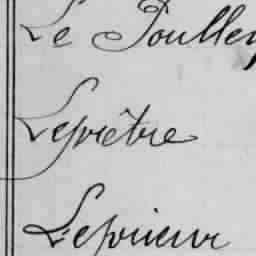 Le Poulleu
Leprêtre
Leprieur